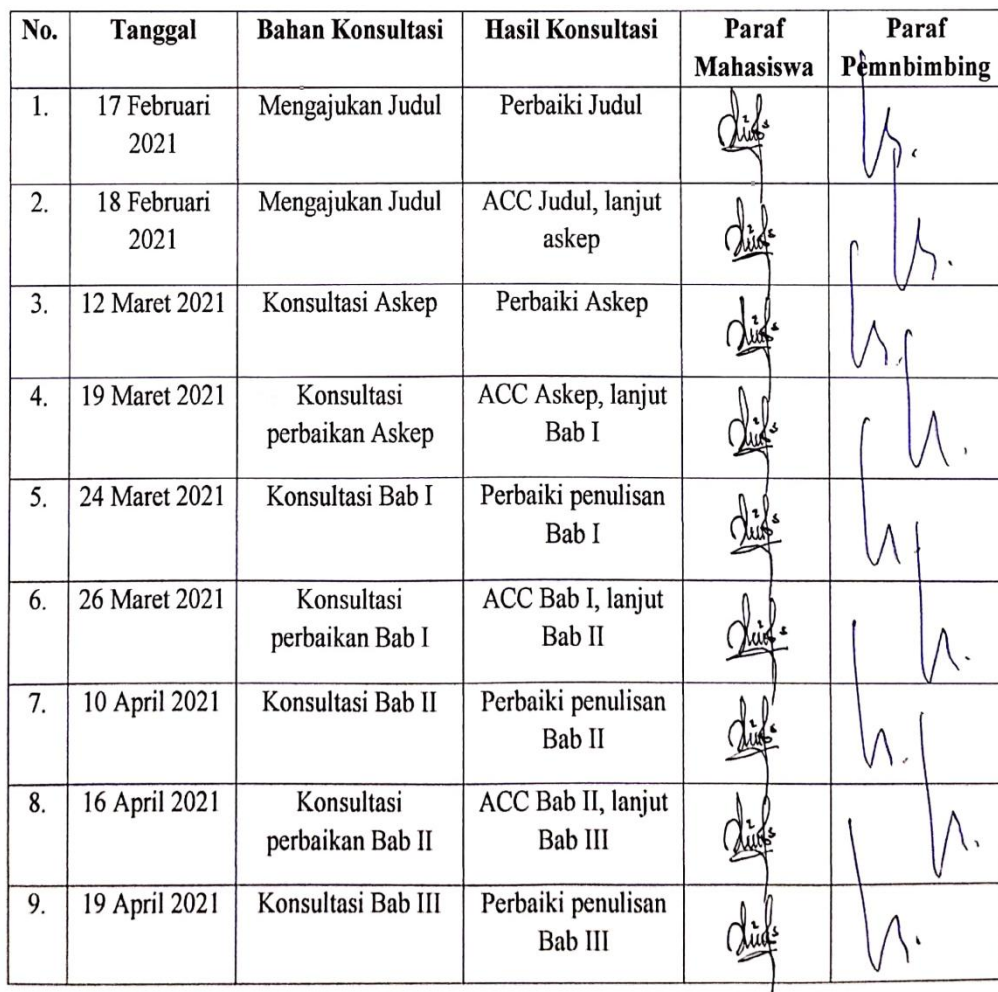 No. Tanggal Bahan Konsultasi Hasil Konsultasi Paraf Paraf
Mahasiswa Pemnbimbing
1. 17 Februari Mengajukan Judul Perbaiki Judul
2021
2. 18 Februari Mengajukan Judul ACC Judul, lanjut
2021 askep
3. 12 Maret 2021 Konsultasi Askep Perbaiki Askep
4. 19 Maret 2021 Konsultasi ACC Askep, lanjut
perbaikan Askep Bab I
5. 24 Maret 2021 Konsultasi Bab I Perbaiki penulisan
Bab I
6. 26 Maret 2021 Konsultasi ACC Bab I, lanjut
perbaikan Bab I Bab II
7. 10 April 2021 Konsultasi Bab II Perbaiki penulisan
Bab II
8. 16 April 2021 Konsultasi ACC Bab II, lanjut
perbaikan Bab II Bab III
9. 19 April 2021 Konsultasi Bab III Perbaiki penulisan
Bab III